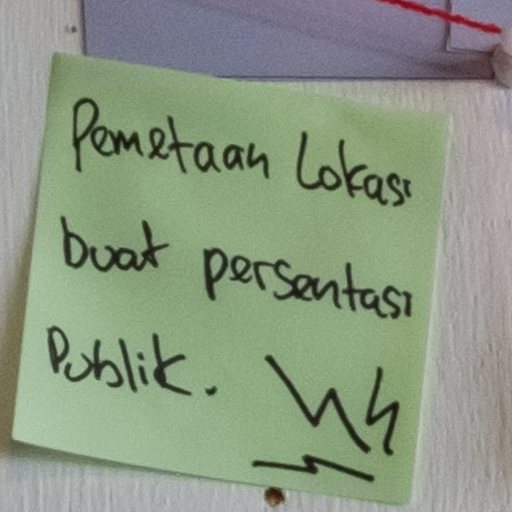 Pemetaan Lokasi
buat persentasi
Publik.